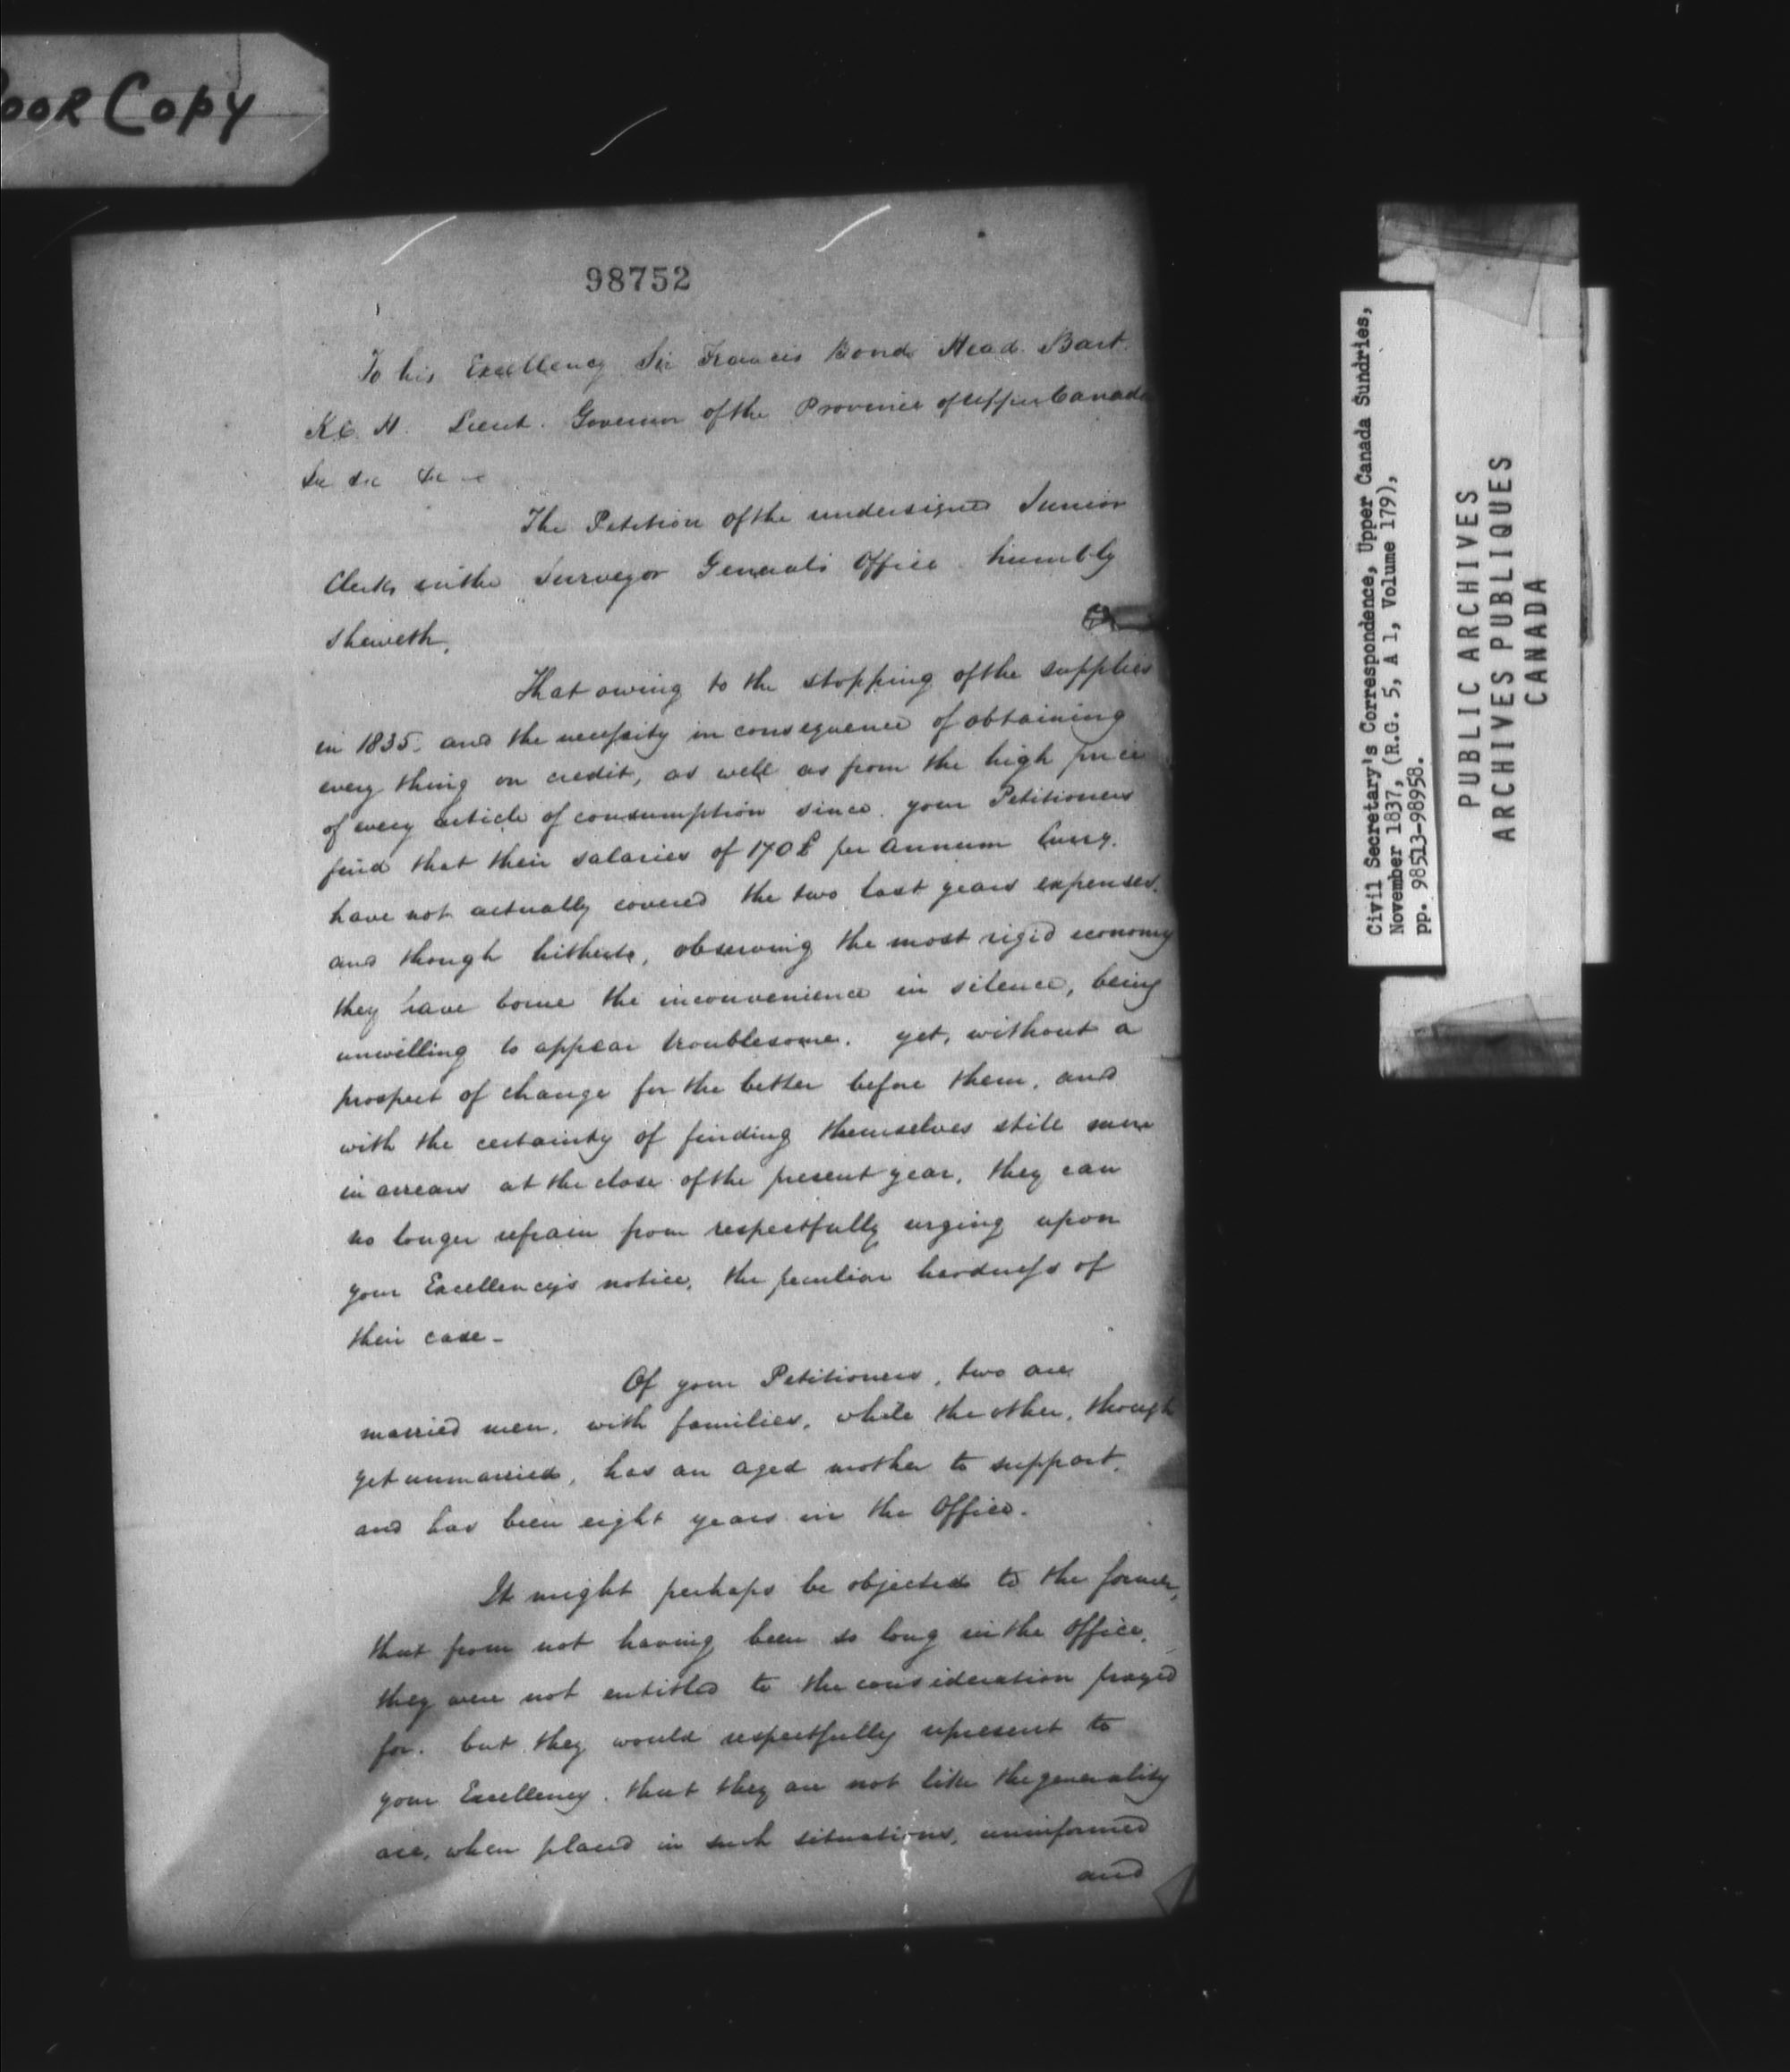 Poor Copy
98752
To his Excellency Sir Francis Bond Head. Bart.
K.C.H. Lieut. Governor of the Province of Upper Canada
&c &c &c
The Petition of the undersigned Junior
Clerks in the Surveyor General's Office humbly
sheweth,
That owing to the stopping of the supplies
in 1835. and the necessity in consequence of obtaining
every thing on credit, as well as from the high price
of every article of consumption since. your Petitioners
find that their salaries of 170£ per annum Curry.
have not actually covered the two last years expenses.
and though hitherto, observing the most rigid economy
they have borne the inconvenience in silence, being
unwilling to appear troublesome. yet, without a
prospect of change for the better before them, and
with the certainty of finding themselves still more
in arrears at the close of the present year, they can
no longer refrain from respectfully urging upon
your Excellency's notice, the peculiar hardness of
their case -
Of your Petitioners, two are
married men, with families, while the other, though
yet unmarried, has an aged mother to support,
and has been eight years in the Office.
It might perhaps be objected to the former,
that from not having been so long in the Office,
they were not entitled to the consideration prayed
for. but they would respectfully represent to
your Excellency. that they are not like the generality
are, when placed in such situations, uninformed
and
Civil Secretary's Correspondence, Upper Canada Sundries,
November 1837, (R.G. 5, A 1, Volume 179),
pp. 98513-98958.
PUBLIC ARCHIVES
ARCHIVES PUBLIQUES
CANADA